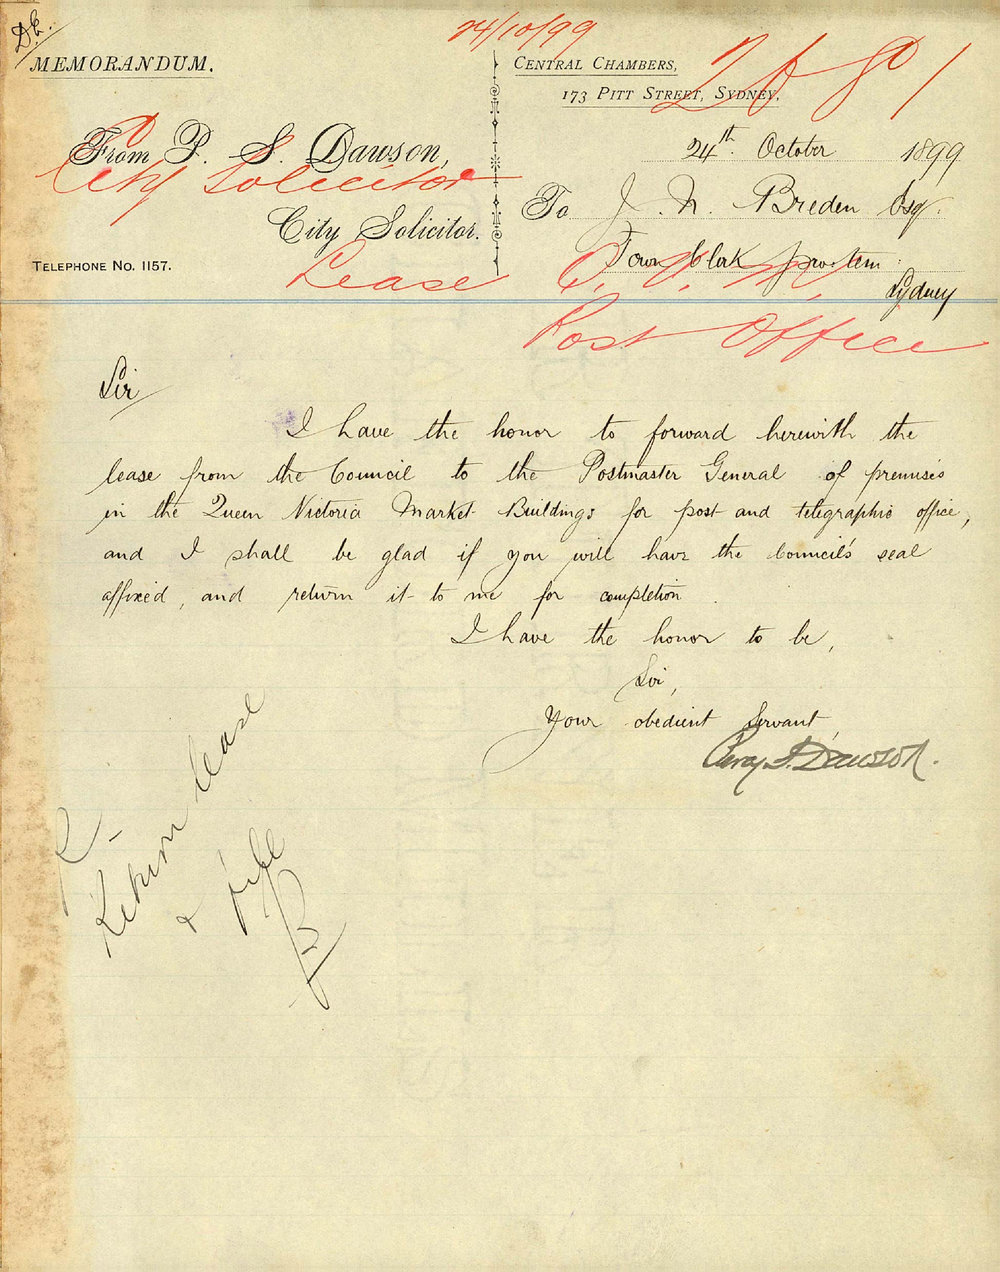 D.C.
24/10/99
MEMORANDUM.
CENTRAL CHAMBERS,
173 PITT STREET, SYDNEY,
From P. S. Dawson,
City Solicitor
24th October 1899
To J. N. Breden Esq.
City Solicitor.
Town Clerk pro: tem:
TELEPHONE No. 1157.
Lease Q. V. M.
Sydney
Post Office
Sir
I have the honor to forward herewith the
lease from the Council to the Postmaster General of premises
in the Queen Victoria Market Buildings for post and telegraphic office,
and I shall be glad if you will have the Council's seal
affixed, and return it to me for completion.
I have the honor to be,
Sir,
Your obedient Servant
Percy S. Dawson.
R
Return lease
& file
B